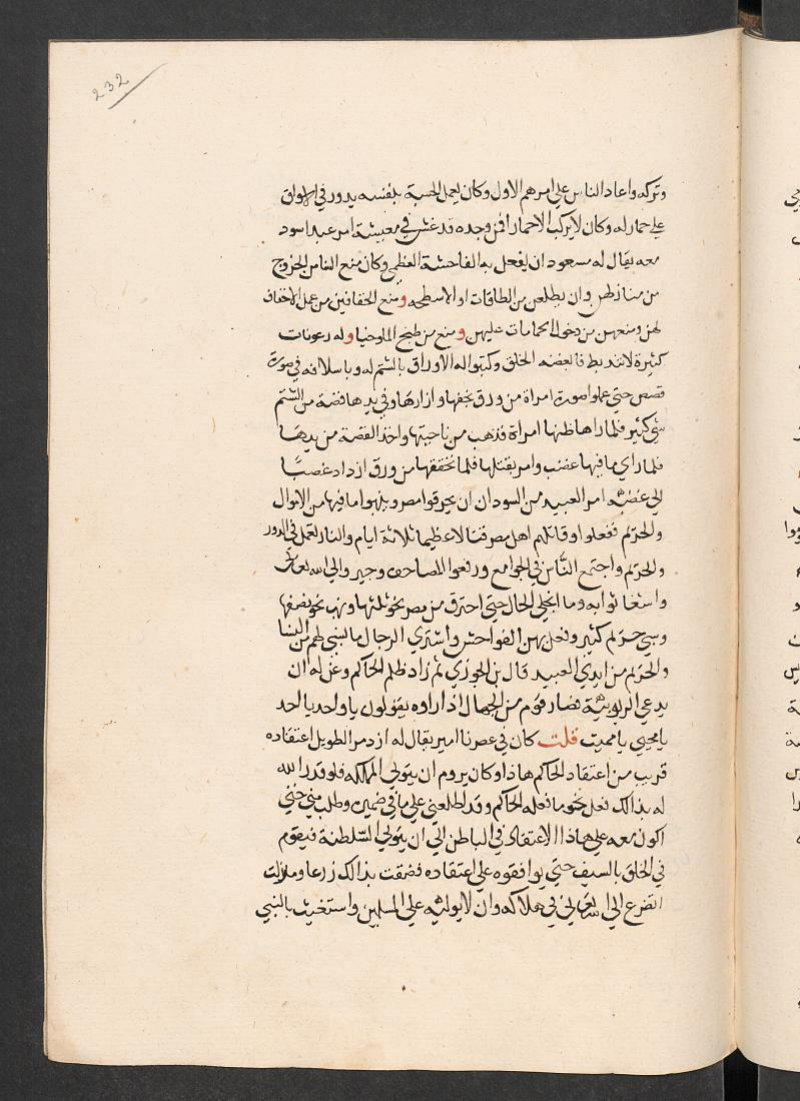 232
وتركه واعاد الناس علي امرهم الاول وكان يعمل الحسبة بنفسه يدور في الاسواق
علي حمار له وكان لا يركب الا حمارا فمن وجده قد غش في معيشة امر عبدا اسود
معه يقال له مسعود ان يفعل به الفاحشة العظمي وكان منع الناس الخروج
من منازلهن وان يطلعن من الطاقات او الاسطحه ومنع الخفافين من عمل الاخفاف
لهن ومنعهن من دخول الحمامات عليهن ومنع من طبخ الملوخيا وله رعونات
كثيرة لا تنضبط فابغضه الخلق وكتبوا له الاوراق بالشتم له وباسلافه في صورة
قصص حتي عملوا صورت امراة من ورق بخفها وازارها وفي يدها قصة من الشتم
شي كثير فلما راها ظنها امراة فذهب من ناحيتها واخذ القصة من يدها
فلما راي ما فيها غضب وامر بقتلها فلما تحققها من ورق ازداد غضبًا
الي غضبه امر العبيد من السودان ان يحرقوا مصر وينهبوا ما فيها من الاموال
والحريم ففعلوا وقاتلهم اهل مصر قتالا عظيما ثلاثة ايام والنار تعمل في الدور
والحريم واجتمع الناس في الجوامع ورفعوا المصاحف وجيروا الي الله تعالي
واستغاثوا به وما انجلي الحال حتي احترق من مصر نحو ثلثها ونهب نحو نصفها
وسبي حريم كثير وفعل بهن الفواحش واشتري الرجال ما سبي لهم من النسا
والحريم من ايدي العبيد قال بن الجوزي ثم زاد ظلم الحاكم وعن له ان
يدعي الربوبية فصار قوم من الجهال اذا راوه يقولون يا واحد يا احد
يا محيي يا مميت قلت كان في عصرنا امير يقال له ازدمر الطويل اعتقاده
قريب من اعتقاد الحاكم هاذا وكان يروم ان يتولي المملكه فلو قدر الله
له بذالك فعل نحو ما فعله الحاكم وقد اطلعني علي ما في ضميره وطلب مني حتي
اكون معه علي هاذا الاعتقاد في الباطن الي ان يتولي السلطنة فيقوم
في الخلق بالسيف حتي يوافقوه علي اعتقاده فضقت بذالك زرعا وما زلت
اتضرع الي الله تعالي في هلاكه وان لا يوليه علي المسلمين واستغيث بالنبي